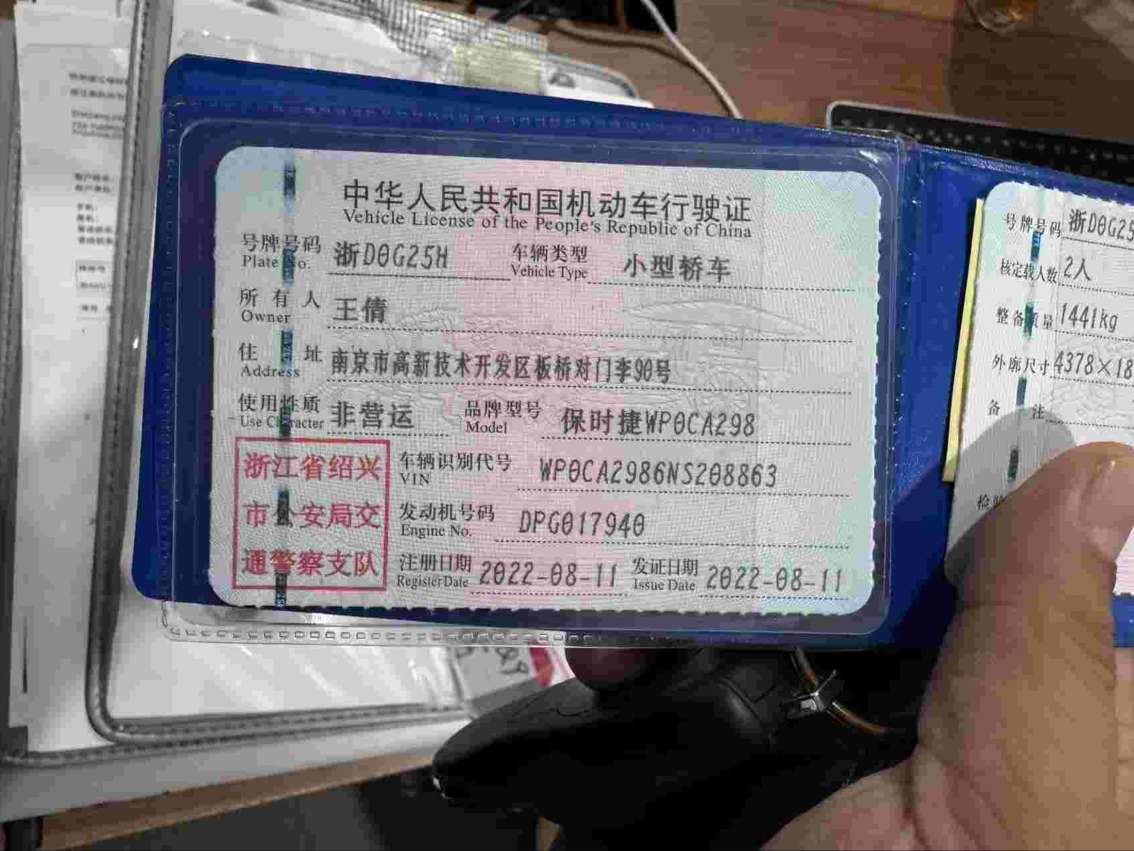 中华人民共和国机动车行驶证
Vehicle License of the People's Republic of China
号牌号码 浙D0G25H 车辆类型 小型轿车
Plate No. Vehicle Type
所有人 王倩
Owner
住址 南京市高新技术开发区板桥对门李90号
Address
使用性质 非营运 品牌型号 保时捷WP0CA298
Use Character Model
浙江省绍兴
市公安局交
通警察支队
车辆识别代号 WP0CA2986NS208863
VIN
发动机号码 DPG017940
Engine No.
注册日期 2022-08-11 发证日期 2022-08-11
Register Date Issue Date
号牌号码 浙D0G25
核定载人数 2人
整备质量 1441kg
外廓尺寸 4378×18
备注